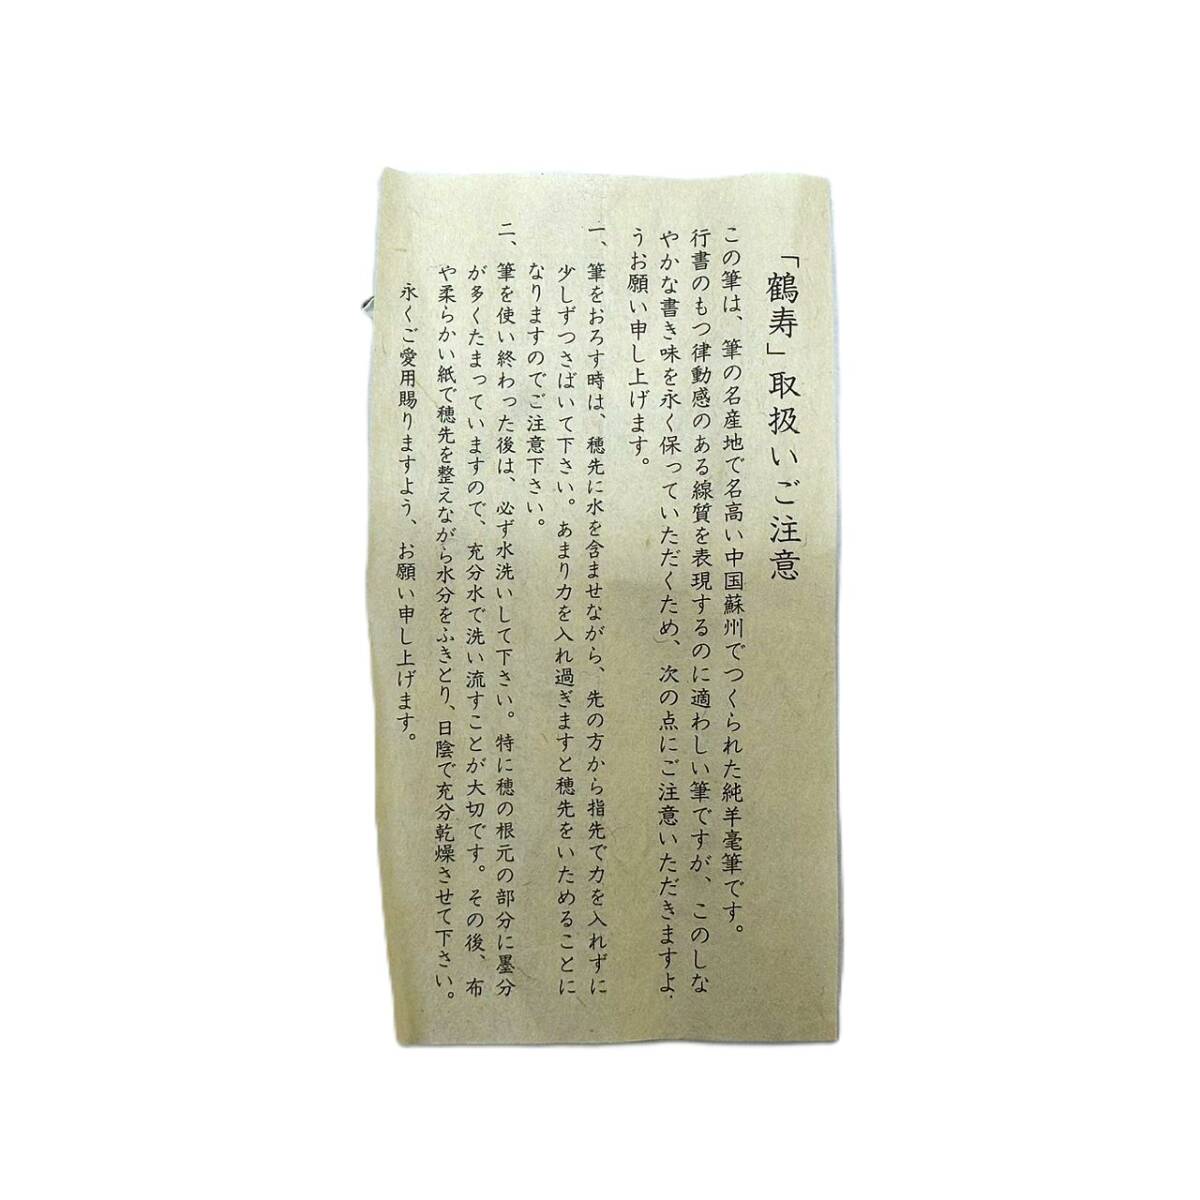 「鶴寿」取扱いご注意
この筆は、筆の名産地で名高い中国蘇州でつくられた純羊毫筆です。
行書のもつ律動感のある線質を表現するのに適わしい筆ですが、このしな
やかな書き味を永く保っていただくため、次の点にご注意いただきますよ
うお願い申し上げます。
一、筆をおろす時は、穂先に水を含ませながら、先の方から指先で力を入れずに
少しずつさばいて下さい。あまり力を入れ過ぎますと穂先をいためることに
なりますのでご注意下さい。
二、筆を使い終わった後は、必ず水洗いして下さい。特に穂の根元の部分に墨分
が多くたまっていますので、充分水で洗い流すことが大切です。その後、布
や柔らかい紙で穂先を整えながら水分をふきとり、日陰で充分乾燥させて下さい。
永くご愛用賜りますよう、お願い申し上げます。